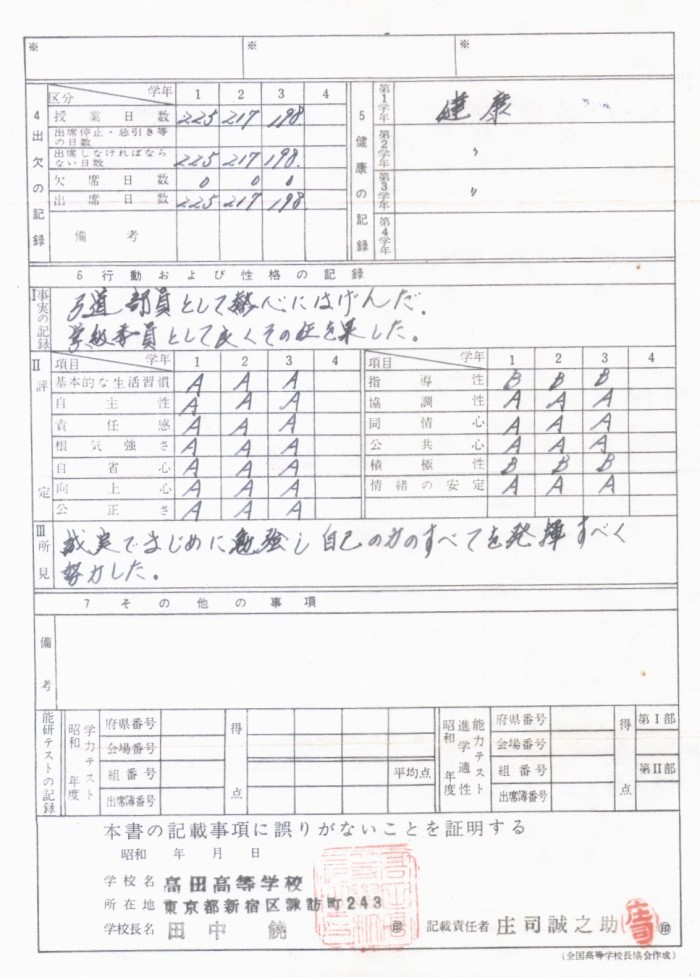 ※ ※ ※
4 出欠の記録
区分 学年 1 2 3 4
授業日数 225 217 198
出席停止・忌引き等の日数
出席しなければならない日数 225 217 198.
欠席日数 0 0 0
出席日数 225 217 198
備考
5 健康の記録
第1学年 健康
第2学年 〃
第3学年 〃
第4学年
6 行動および性格の記録
I 事実の記録
弓道部員として熱心にはげんだ.
学級委員として良くその任を果した。
II 評定
項目 学年 1 2 3 4
基本的な生活習慣 A A A
自主性 A A A
責任感 A A A
根気強さ A A A
自省心 A A A
向上心 A A A
公正さ A A A
項目 学年 1 2 3 4
指導性 B B B
協調性 A A A
同情心 A A A
公共心 A A A
積極性 B B B
情緒の安定 A A A
III 所見
誠実でまじめに勉強し自己の力のすべてを発揮すべく
努力した。
7 その他の事項
備考
能研テストの記録
昭和 年度 学力テスト
府県番号
会場番号
組番号
出席簿番号
得点
平均点
昭和 年度 進学適性能力テスト
府県番号
会場番号
組番号
出席簿番号
得点
第I部
第II部
本書の記載事項に誤りがないことを証明する
昭和 年 月 日
学校名 高田高等学校
所在地 東京都新宿区諏訪町243
学校長名 田中 饒 印
記載責任者 庄司誠之助 印
庄司
(全国高等学校長協会作成)